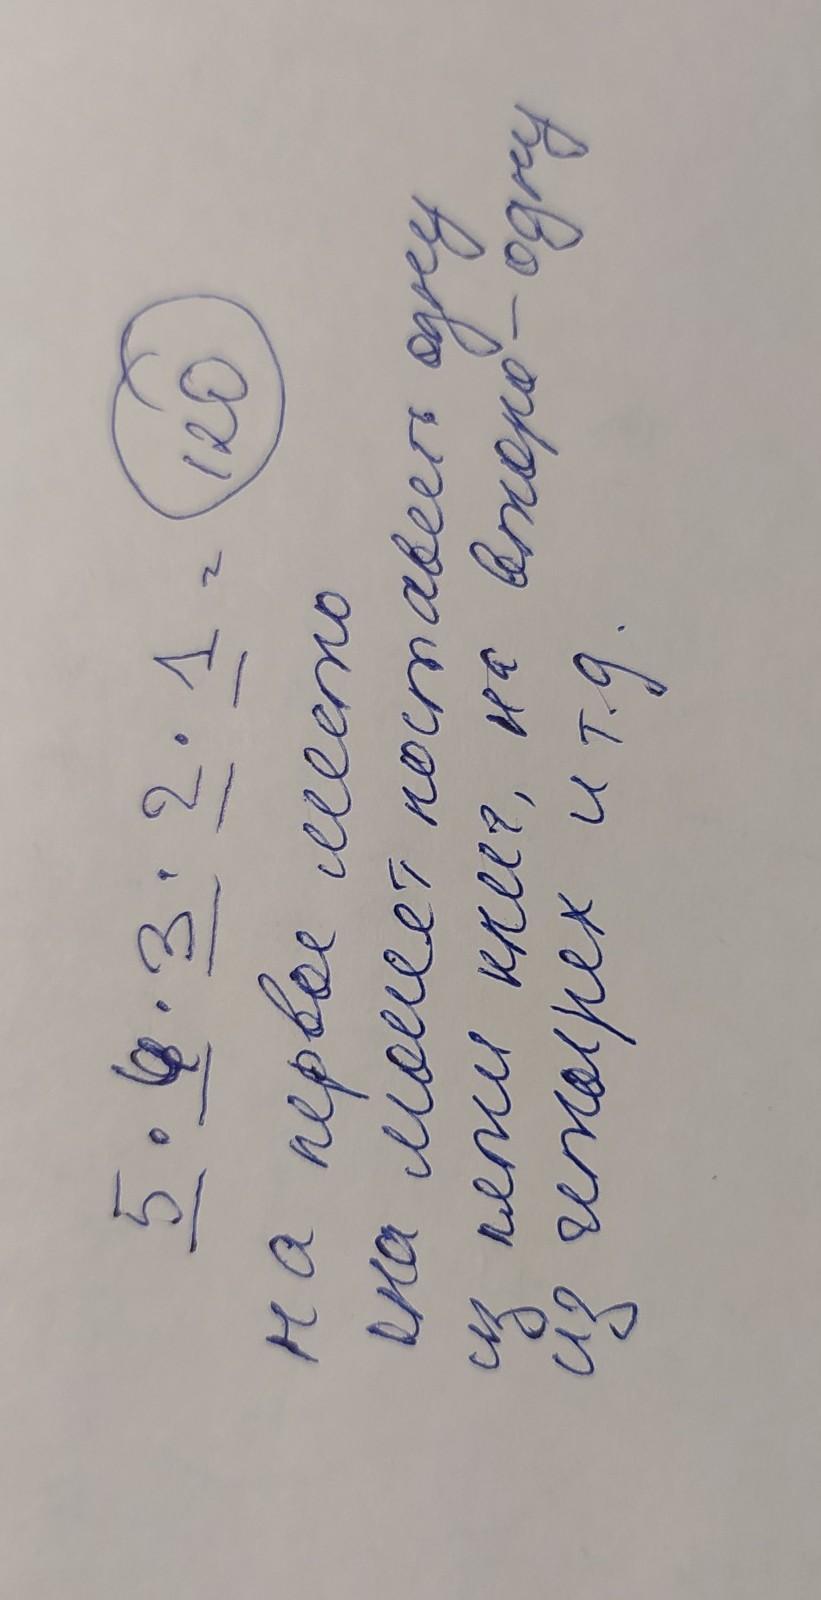 5 · 4 · 3 · 2 · 1 = 120
на первое место
она может поставить одну
из пяти книг, на второе - одну
из четырех и т.д.